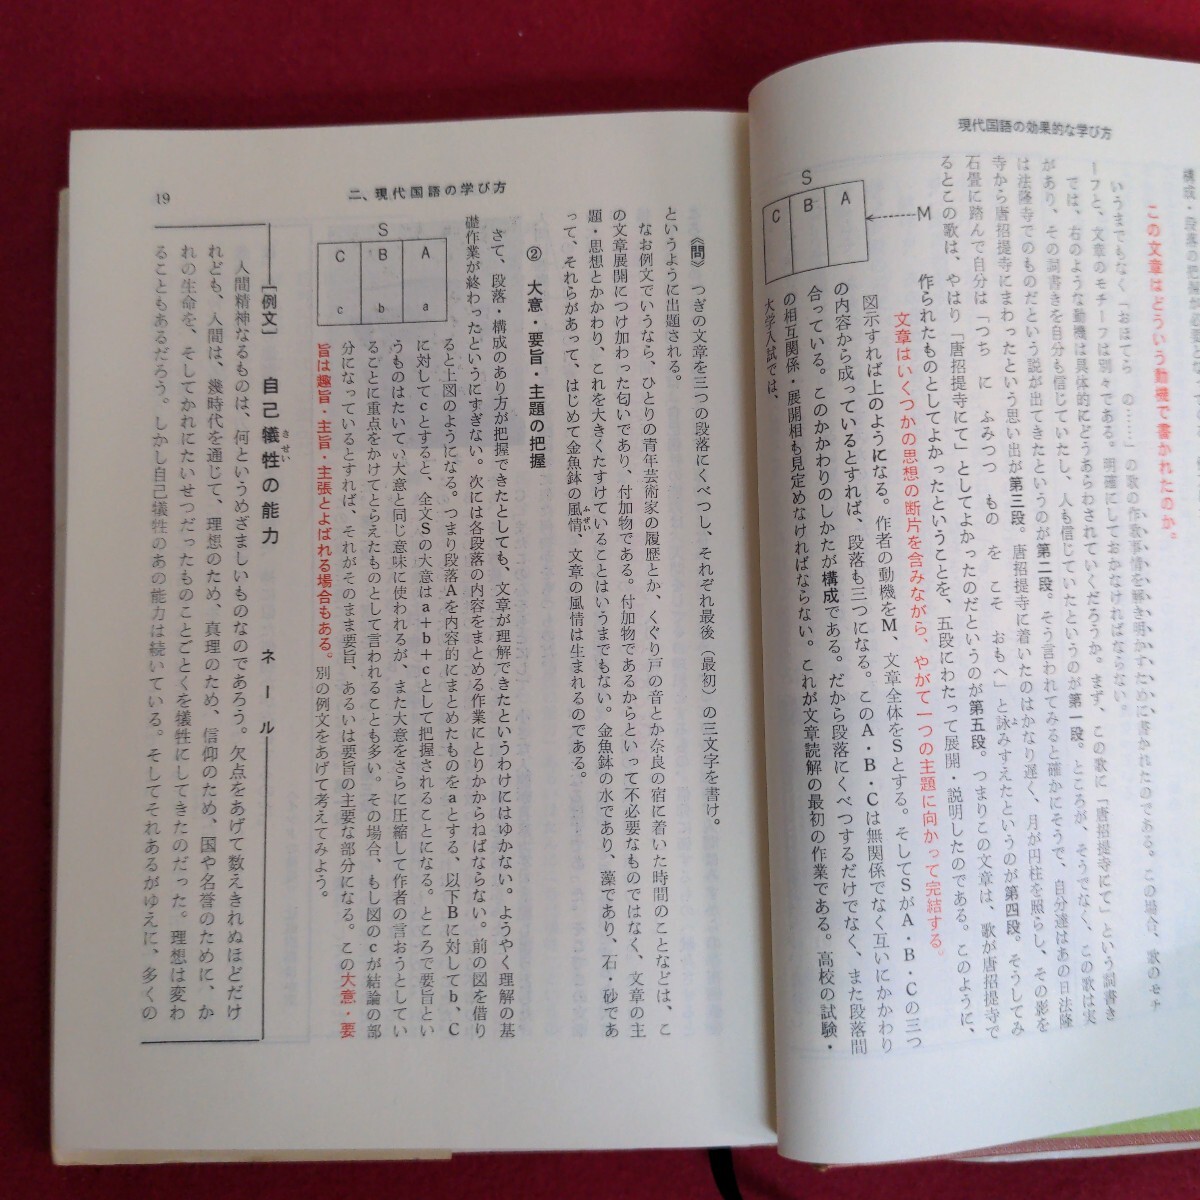 現代国語の効果的な学び方
この文章はどういう動機で書かれたのか。
いうまでもなく「おほてら の……」の歌の作歌事情を解き明かすために書かれたのである。この場合、歌のモチ
ーフと、文章のモチーフは別々である。明確にしておかなければならない。
では、右のような動機は具体的にどうあらわされていくだろうか。まず、この歌に「唐招提寺にて」という詞書き
があり、その詞書きを自分も信じていたし、人も信じていたというのが第一段。ところが、そうでなく、この歌は実
は法隆寺でのものだという説が出てきたというのが第二段。そう言われてみると確かにそうで、自分達はあの日法隆
寺から唐招提寺にまわったという思い出が第三段。唐招提寺に着いたのはかなり遅く、月が円柱を照らし、その影を
石畳に踏んで自分は「つち に ふみつつ もの を こそ おもへ」と詠みすえたというのが第四段。そうしてみ
るとこの歌は、やはり「唐招提寺にて」としてよかったのだというのが第五段。つまりこの文章は、歌が唐招提寺で
作られたものとしてよかったということを、五段にわたって展開・説明したのである。このように、
文章はいくつかの思想の断片を含みながら、やがて一つの主題に向かって完結する。
図示すれば上のようになる。作者の動機をM、文章全体をSとする。そしてSがA・B・Cの三つ
の内容から成っているとすれば、段落も三つになる。このA・B・Cは無関係でなく互いにかかわり
合っている。このかかわりのしかたが構成である。だから段落にくべつするだけでなく、また段落間
の相互関係・展開相も見定めなければならない。これが文章読解の最初の作業である。高校の試験・
大学入試では、
S
C B A
M
二、現代国語の学び方
19
《問》 つぎの文章を三つの段落にくべつし、それぞれ最後（最初）の三文字を書け。
というように出題される。
なお例文でいうなら、ひとりの青年芸術家の履歴とか、くぐり戸の音とか奈良の宿に着いた時間のことなどは、こ
の文章展開につけ加わった匂いであり、付加物である。付加物であるからといって不必要なものではなく、文章の主
題・思想とかかわり、これを大きくたすけていることはいうまでもない。金魚鉢の水であり、藻であり、石・砂であ
って、それらがあって、はじめて金魚鉢の風情、文章の風情は生まれるのである。
② 大意・要旨・主題の把握
さて、段落・構成のあり方が把握できたとしても、文章が理解できたというわけにはゆかない。ようやく理解の基
礎作業が終わったというにすぎない。次には各段落の内容をまとめる作業にとりかからねばならない。前の図を借り
ると上図のようになる。つまり段落Aを内容的にまとめたものをaとする、以下Bに対してb、C
に対してcとすると、全文Sの大意はa＋b＋cとして把握されることになる。ところで要旨とい
うものはたいてい大意と同じ意味に使われるが、また大意をさらに圧縮して作者の言おうとしてい
ることに重点をかけてとらえたものとして言われることも多い。その場合、もし図のcが結論の部
分になっているとすれば、それがそのまま要旨、あるいは要旨の主要な部分になる。この大意・要
旨は趣旨・主旨・主張とよばれる場合もある。別の例文をあげて考えてみよう。
S
C B A
c b a
［例文］ 自己犠牲の能力 ネール
人間精神なるものは、何というめざましいものなのであろう。欠点をあげて数えきれぬほどだけ
れども、人間は、幾時代を通じて、理想のため、真理のため、信仰のため、国や名誉のために、か
れの生命を、そしてかれにたいせつだったものことごとくを犠牲にしてきたのだった。理想は変わ
ることもあるだろう。しかし自己犠牲のあの能力は続いている。そしてそれあるがゆえに、多くの